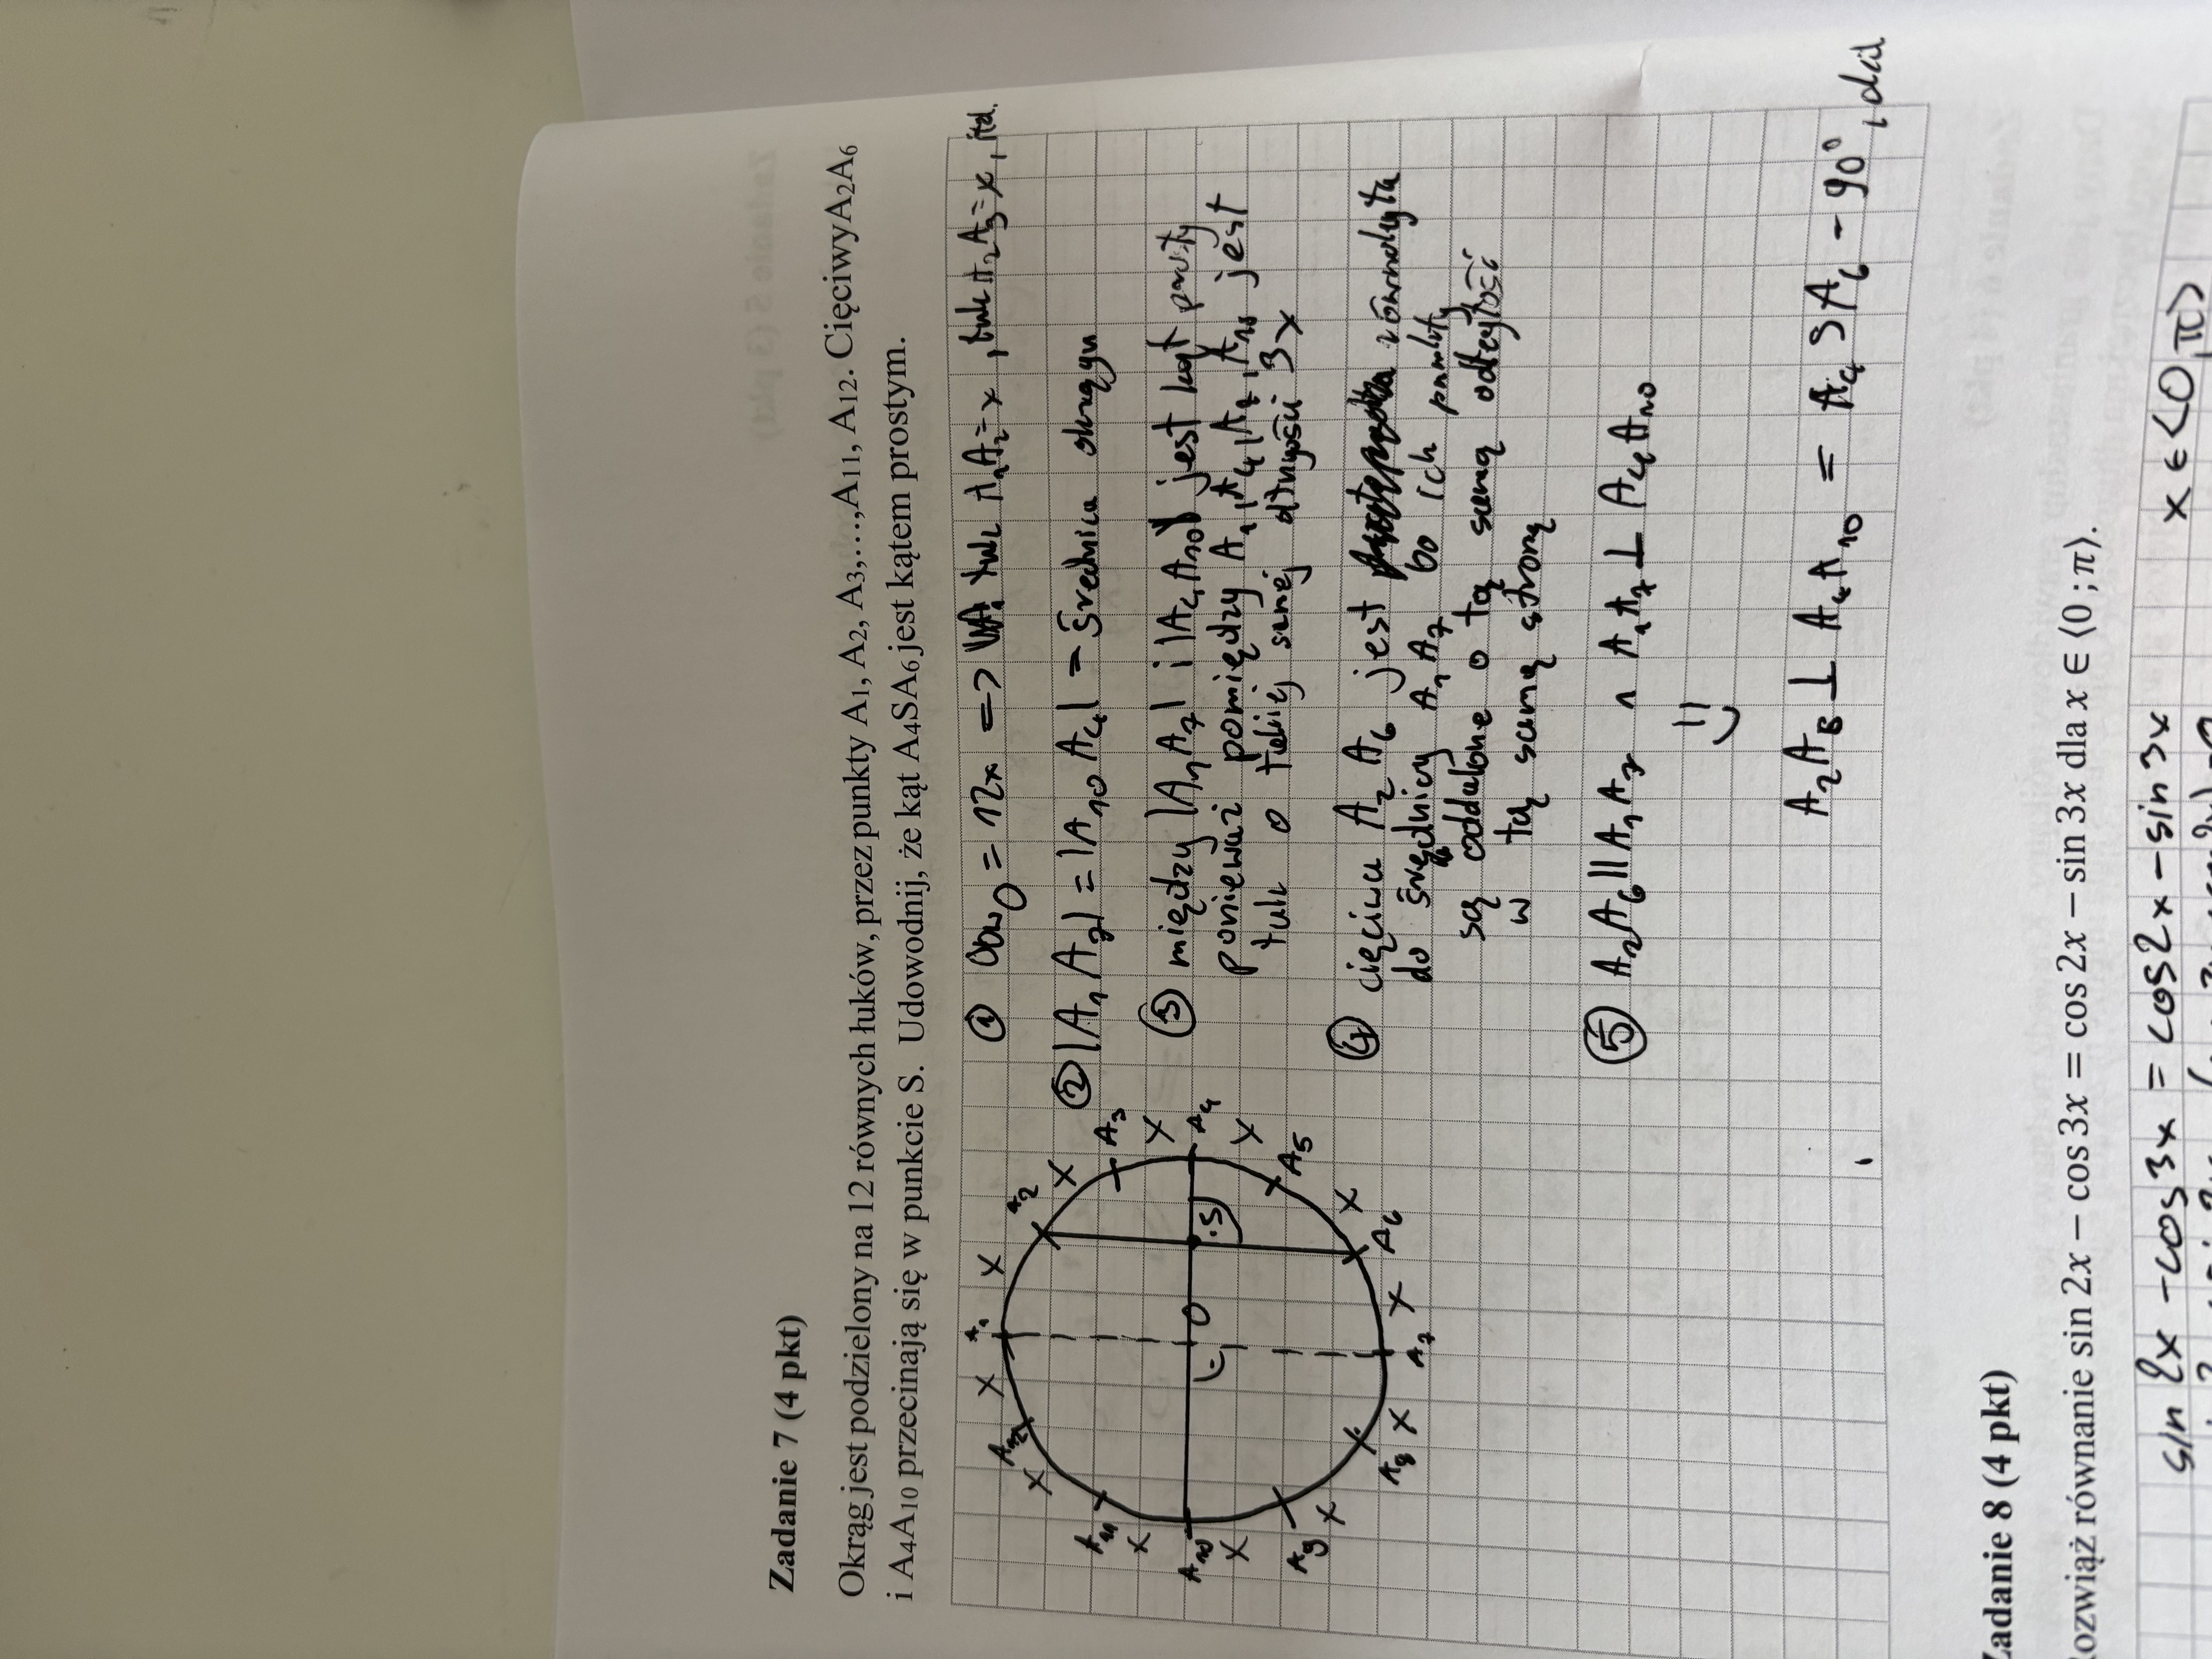 Zadanie 7 (4 pkt)
Okrąg jest podzielony na 12 równych łuków, przez punkty A1, A2, A3,…,A11, A12. CięciwyA2A6
i A4A10 przecinają się w punkcie S. Udowodnij, że kąt A4SA6 jest kątem prostym.
① Obw_O = 12x => łuk A₁A₂=x, łuk A₂A₃=x, itd.
② |A₁A₇| = |A₁₀A₄| - średnica okręgu
③ między |A₁A₇| i |A₄A₁₀| jest kąt prosty
ponieważ pomiędzy A₁, A₄, A₇, A₁₀ jest
łuk o takiej samej długości 3x
④ cięciwa A₂A₆ jest równoległa
do średnicy A₁A₇ bo ich punkty
są oddalone o tą samą odległość
w tą samą stronę
⑤ A₂A₆||A₁A₇ ∧ A₁A₇⊥A₄A₁₀
A₂A₆⊥A₄A₁₀ = A₄SA₆ - 90°
A₁
A₂
A₃
A₄
A₅
A₆
A₇
A₈
A₉
A₁₀
A₁₁
A₁₂
x
x
x
x
x
x
x
x
x
x
x
S
O
Zadanie 8 (4 pkt)
Rozwiąż równanie sin 2x − cos 3x = cos 2x − sin 3x dla x ∈ ⟨0 ; π⟩.
sin 2x - cos 3x = cos 2x - sin 3x x ∈ <0, π>